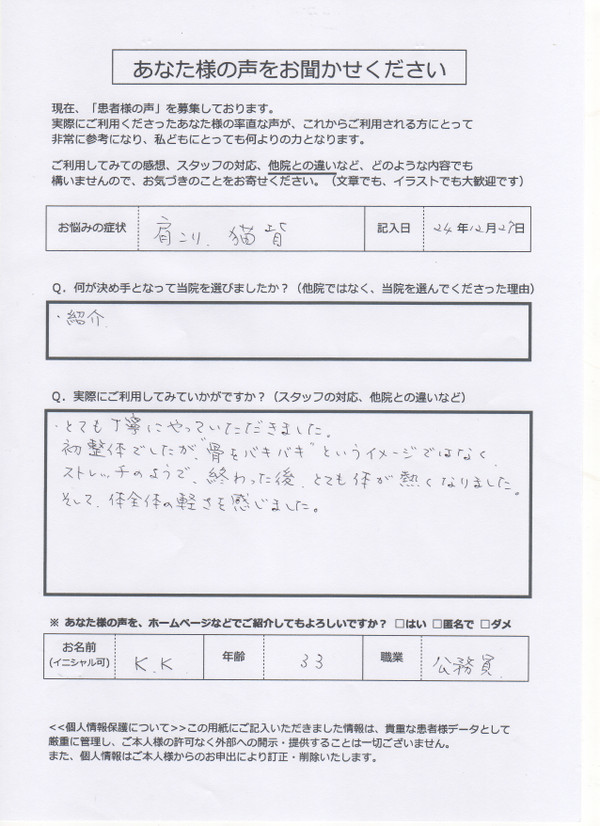 あなた様の声をお聞かせください
現在、「患者様の声」を募集しております。
実際にご利用くださったあなた様の率直な声が、これからご利用される方にとって
非常に参考になり、私どもにとっても何よりの力となります。
ご利用してみての感想、スタッフの対応、他院との違いなど、どのような内容でも
構いませんので、お気づきのことをお寄せください。（文章でも、イラストでも大歓迎です）
お悩みの症状 肩こり、猫背 記入日 24年12月29日
Q．何が決め手となって当院を選びましたか？（他院ではなく、当院を選んでくださった理由）
・紹介
Q．実際にご利用してみていかがですか？（スタッフの対応、他院との違いなど）
・とても丁寧にやっていただきました。
初整体でしたが"骨をバキバキ"というイメージではなく、
ストレッチのようで、終わった後、とても体が熱くなりました。
そして、体全体の軽さを感じました。
※ あなた様の声を、ホームページなどでご紹介してもよろしいですか？ □はい □匿名で □ダメ
お名前
(イニシャル可) K.K. 年齢 33 職業 公務員
<<個人情報保護について>>この用紙にご記入いただきました情報は、貴重な患者様データとして
厳重に管理し、ご本人様の許可なく外部への開示・提供することは一切ございません。
また、個人情報はご本人様からのお申出により訂正・削除いたします。